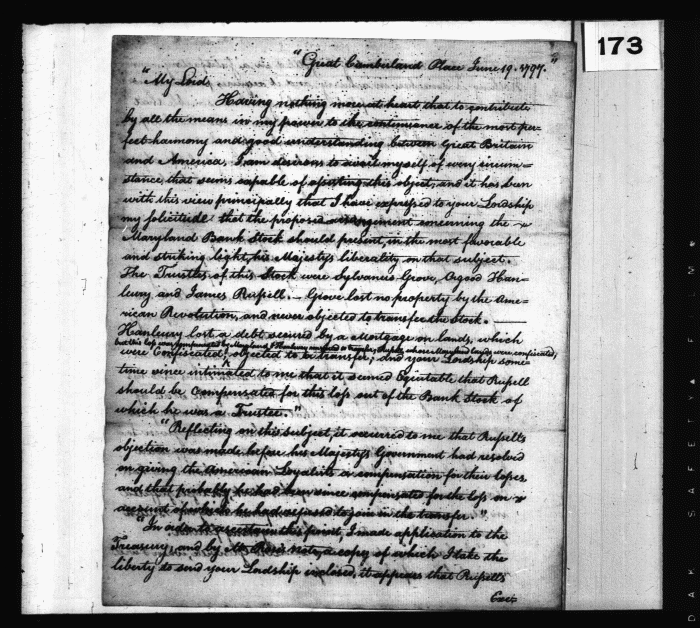 173
"Great Cumberland Place June 19. 1797."
"My Lord,
Having nothing more at heart that to contribute
by all the means in my power to the continuance of the most per=
fect harmony and good understanding between Great Britain
and America, I am desirous to avail myself of every circum=
stance, that seems capable of affecting this object, and it has been
with this view principally that I have expressed to your Lordship
my solicitude that the proposed arrangement concerning the
Maryland Bank Stock should present, in the most favorable
and striking light, his Majesty's liberality on that subject.
The Trustees of this Stock were Sylvanus Grove, Osgood Han=
bury and James Russell. Grove lost no property by the Ame=
rican Revolution, and never objected to transfer the Stock.
Hanbury lost a debt secured by a Mortgage on lands, which
but this loss was compensated by Maryland & Hanbury consented to transfer, Russell, whose Maryland lands were confiscated,
were Confiscated; objected to a transfer; and your Lordship some=
time since intimated to me that it seemed Equitable that Russell
should be compensated for this loss out of the Bank Stock of
which he was a Trustee."
"Reflecting on this subject, it occurred to me that Russell's
objection was made before his Majesty's Government had resolved
on giving the American Loyalists a compensation for their losses
and that probably he had been since compensated for the loss on
account of which he had refused to join in the transfer."
"In order to ascertain this point, I made application to the
Treasury, and by the note, a copy of which I take the
liberty to send your Lordship inclosed, it appears that Russell's
Exec
DAK SAFETY FILM